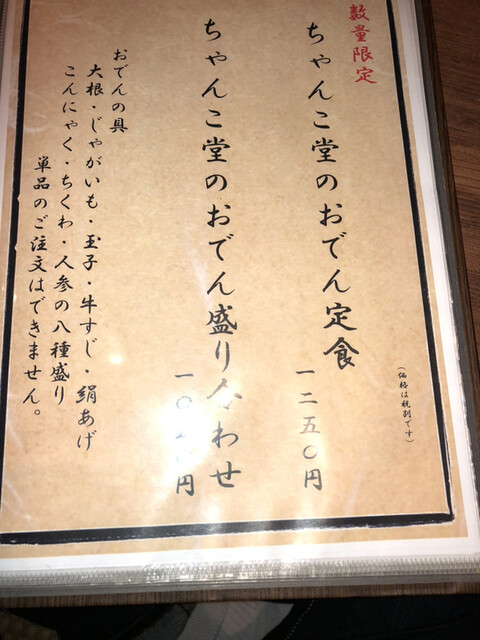 数量限定
(価格は税別です)
ちゃんこ堂のおでん定食
一二五〇円
ちゃんこ堂のおでん盛り合わせ
おでんの具
大根・じゃがいも・玉子・牛すじ・絹あげ
こんにゃく・ちくわ・人参の八種盛り
単品のご注文はできません。